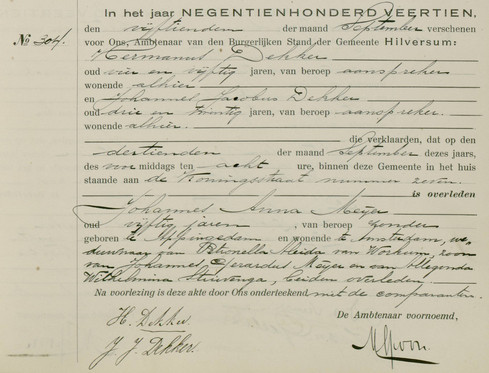 In het jaar NEGENTIENHONDERD VEERTIEN,
No 304.
den vijftienden der maand September verschenen
voor Ons, Ambtenaar van den Burgerlijken Stand der Gemeente Hilversum:
Hermanus Dekker
oud vier en vijftig jaren, van beroep aanspreker
wonende alhier
en Johannes Jacobus Dekker
oud drie en twintig jaren, van beroep aanspreker.
wonende alhier.
die verklaarden, dat op den
dertienden der maand September dezes jaars,
des voormiddags ten acht ure, binnen deze Gemeente in het huis
staande aan de Koningsstraat nummer zeven.
is overleden
Johannes Anna Meijer
oud vijftig jaren, van beroep zonder
geboren te Appingedam en wonende te Amsterdam, we-
duwnaar van Petronella Aleida van Workum, zoon
van Johannes Gerardus Meijer en van
Wilhelmina, beiden overleden.
Na voorlezing is deze akte door Ons onderteekend met de comparanten.
De Ambtenaar voornoemd,
H. Dekker
J. J. Dekker.